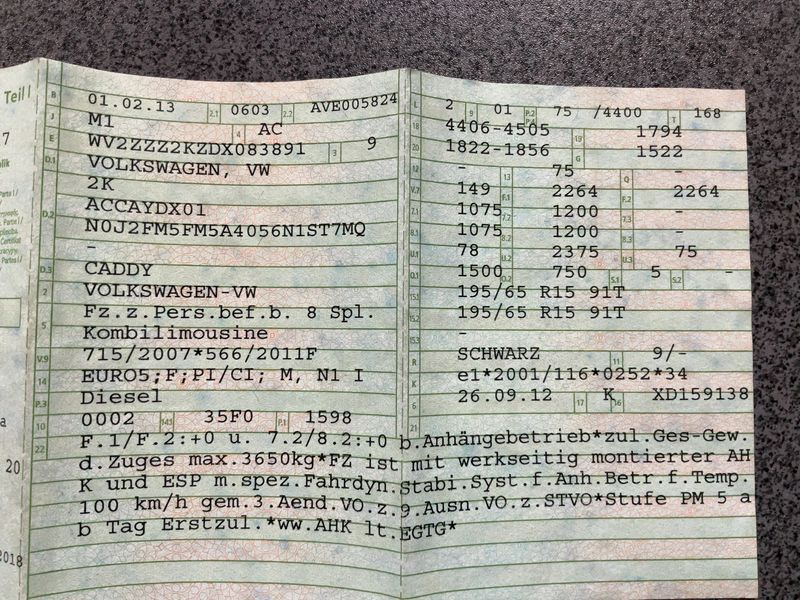 Teil I
B 01.02.13 2.1 0603 2.2 AVE005824
J M1 4 AC
E WV2ZZZ2KZDX083891 3 9
D.1 VOLKSWAGEN, VW
2K
D.2 ACCAYDX01
N0J2FM5FM5A4056N1ST7MQ
-
D.3 CADDY
2 VOLKSWAGEN-VW
5 Fz.z.Pers.bef.b. 8 Spl.
Kombilimousine
V.9 715/2007*566/2011F
14 EURO5;F;PI/CI; M, N1 I
P.3 Diesel
10 0002 14.1 35F0 P.1 1598
L 2 9 01 P.2 P.4 75 /4400 T 168
18 4406-4505 19 1794
20 1822-1856 G 1522
12 - 13 75 Q -
V.7 149 F.1 2264 F.2 2264
7.1 1075 7.2 1200 7.3 -
8.1 1075 8.2 1200 8.3 -
U.1 78 U.2 2375 U.3 75
O.1 1500 O.2 750 S.1 5 S.2 -
15.1 195/65 R15 91T
15.2 195/65 R15 91T
15.3 -
R SCHWARZ 11 9/-
K e1*2001/116*0252*34
6 26.09.12 17 K 16 XD159138
21
22 F.1/F.2:+0 u. 7.2/8.2:+0 b.Anhängebetrieb*zul.Ges-Gew.
d.Zuges max.3650kg*FZ ist mit werkseitig montierter AH
K und ESP m.spez.Fahrdyn.Stabi.Syst.f.Anh.Betr.f.Temp.
100 km/h gem.3.Aend.VO.z.9.Ausn.VO.z.STVO*Stufe PM 5 a
b Tag Erstzul.*ww.AHK lt.EGTG*
7
20
2018